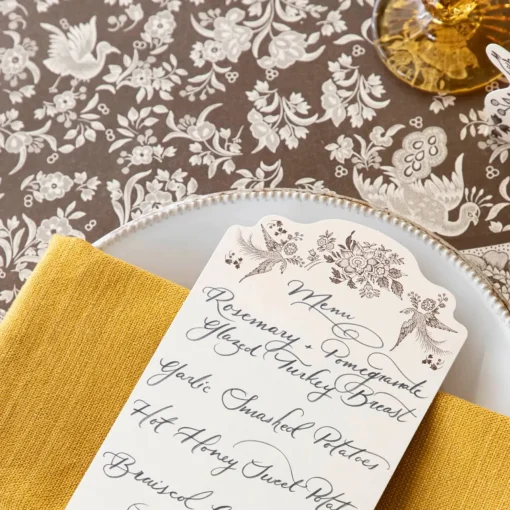 Menu
Rosemary + Pomegranate
Glazed Turkey Breast
Garlic Smashed Potatoes
Hot Honey Sweet
Braised